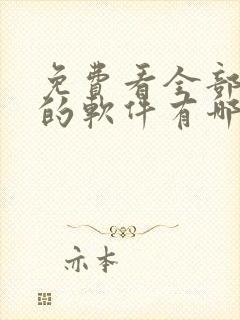 免費看全部
的軟件有哪
亦本